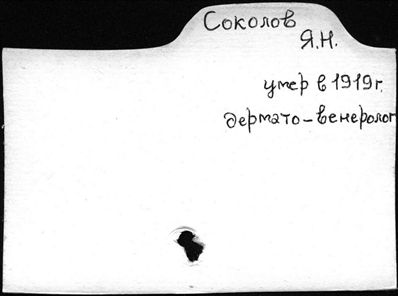 Соколов
Я.Н.
умер в 1919г.
дермато-венеролог